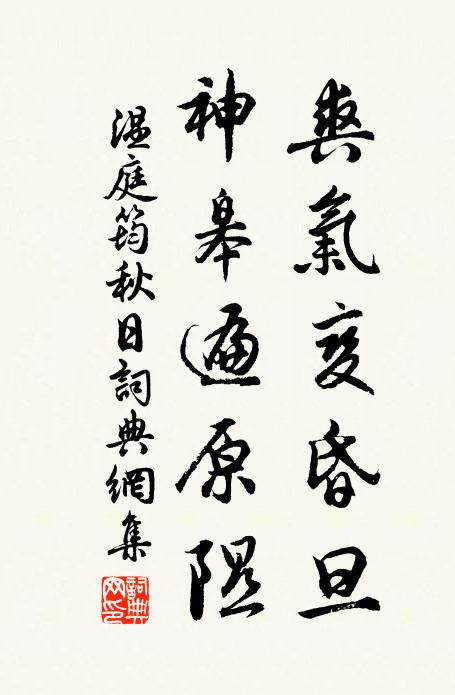 爽氣変昏旦
神皋遍原隰
溫庭筠秋日詞典網集
詞典網印